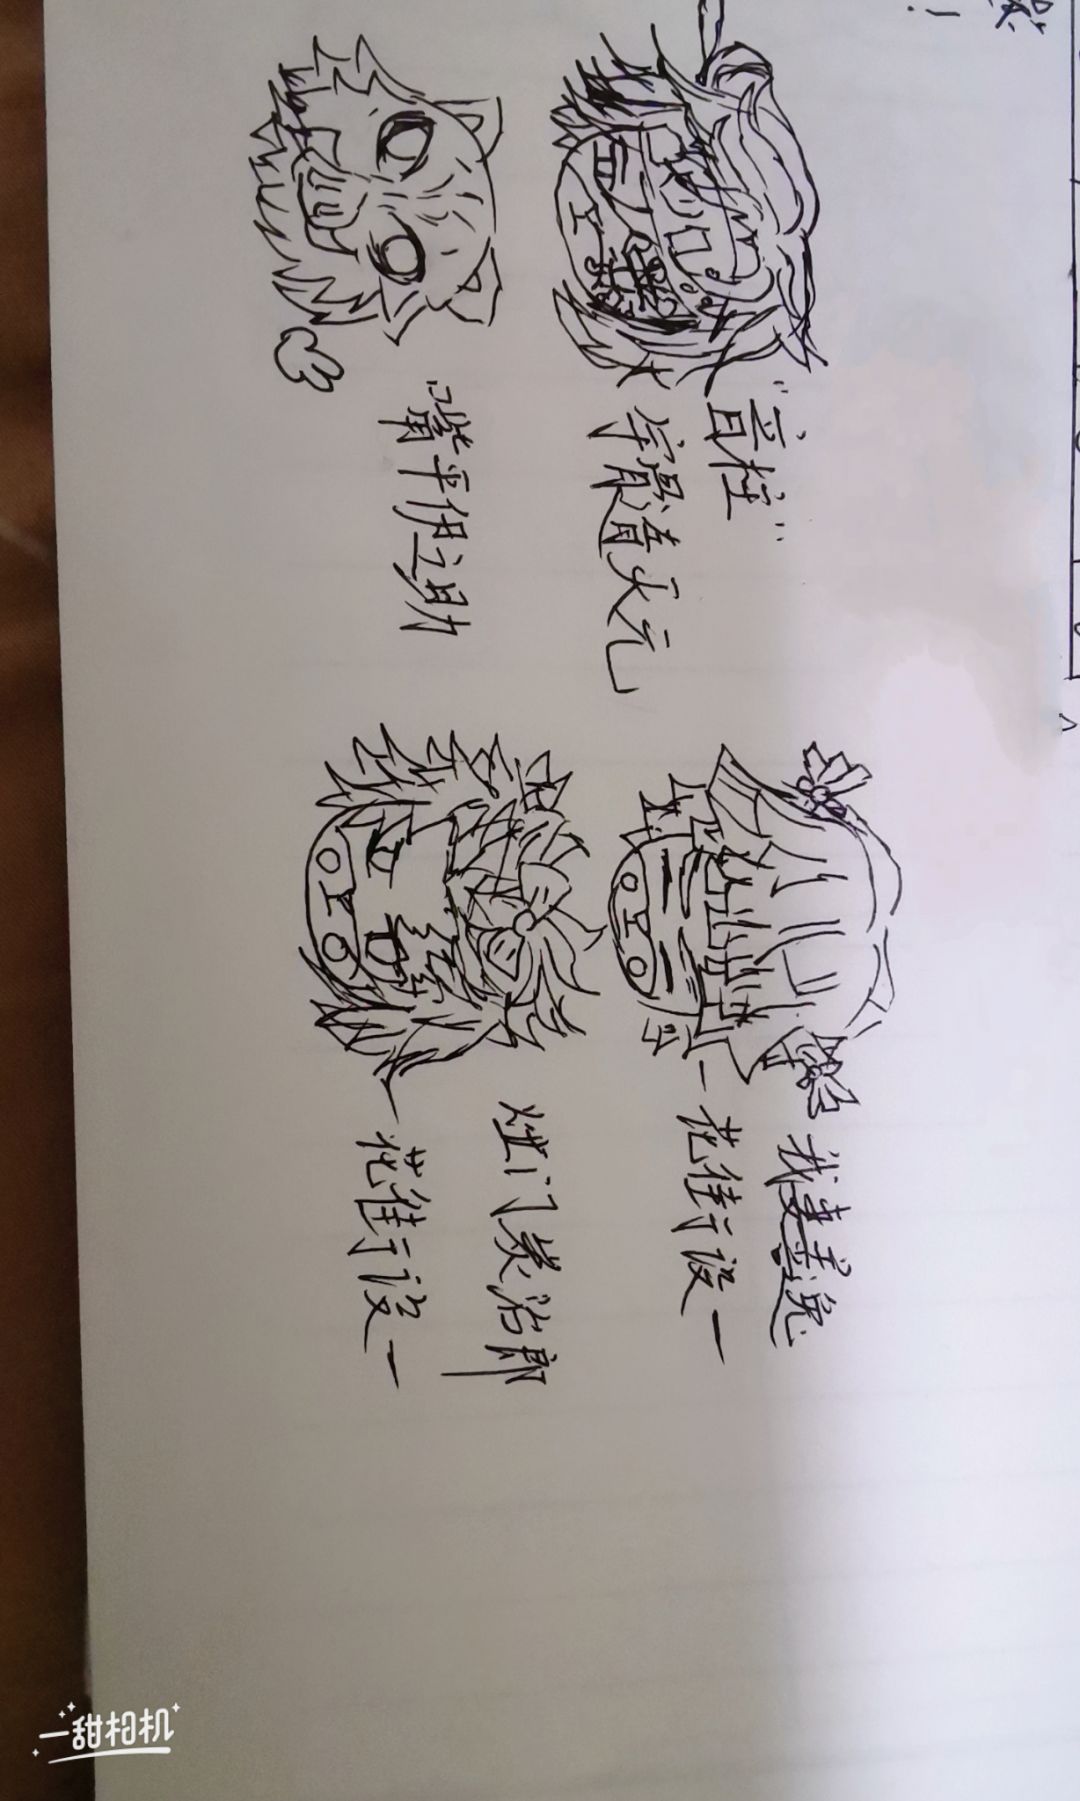 "音柱"
宇髄天元
嘴平伊之助
我妻善逸
一花街行设一
灶门炭治郎
一花街行设一
一甜相机